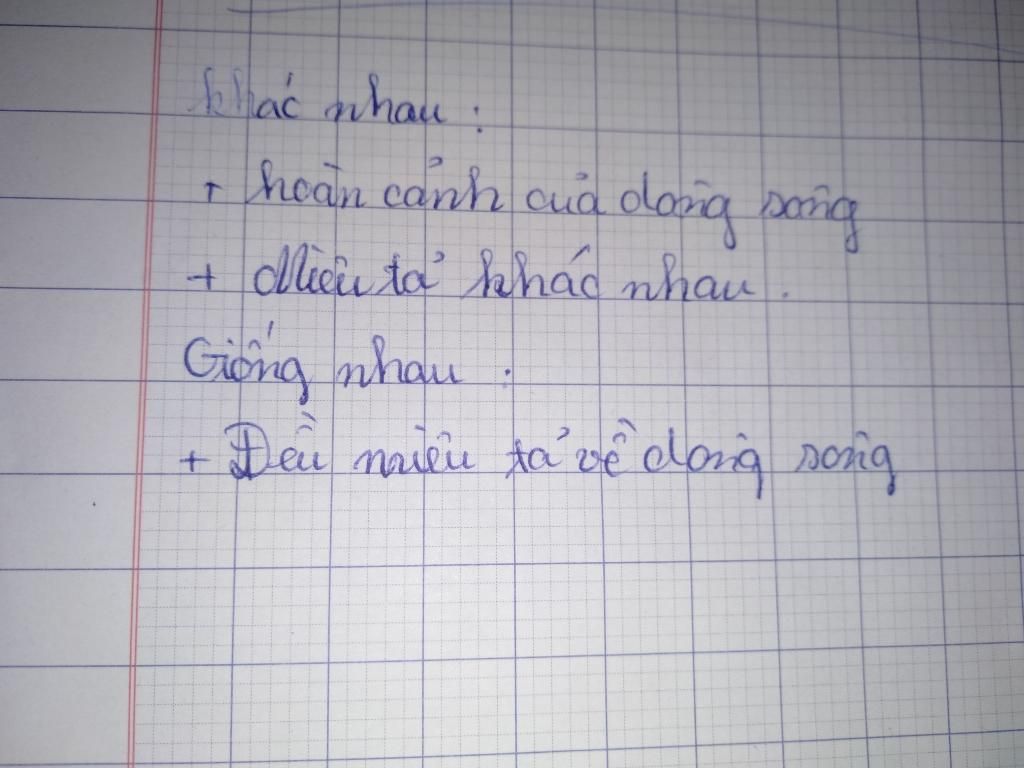 khác nhau :
+ hoàn cảnh của dòng sông
+ Miêu tả khác nhau.
Giống nhau :
+ Đều miêu tả về dòng sông